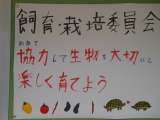 飼育・栽培委員会
めあて
協力して生物を大切に
楽しく育てよう